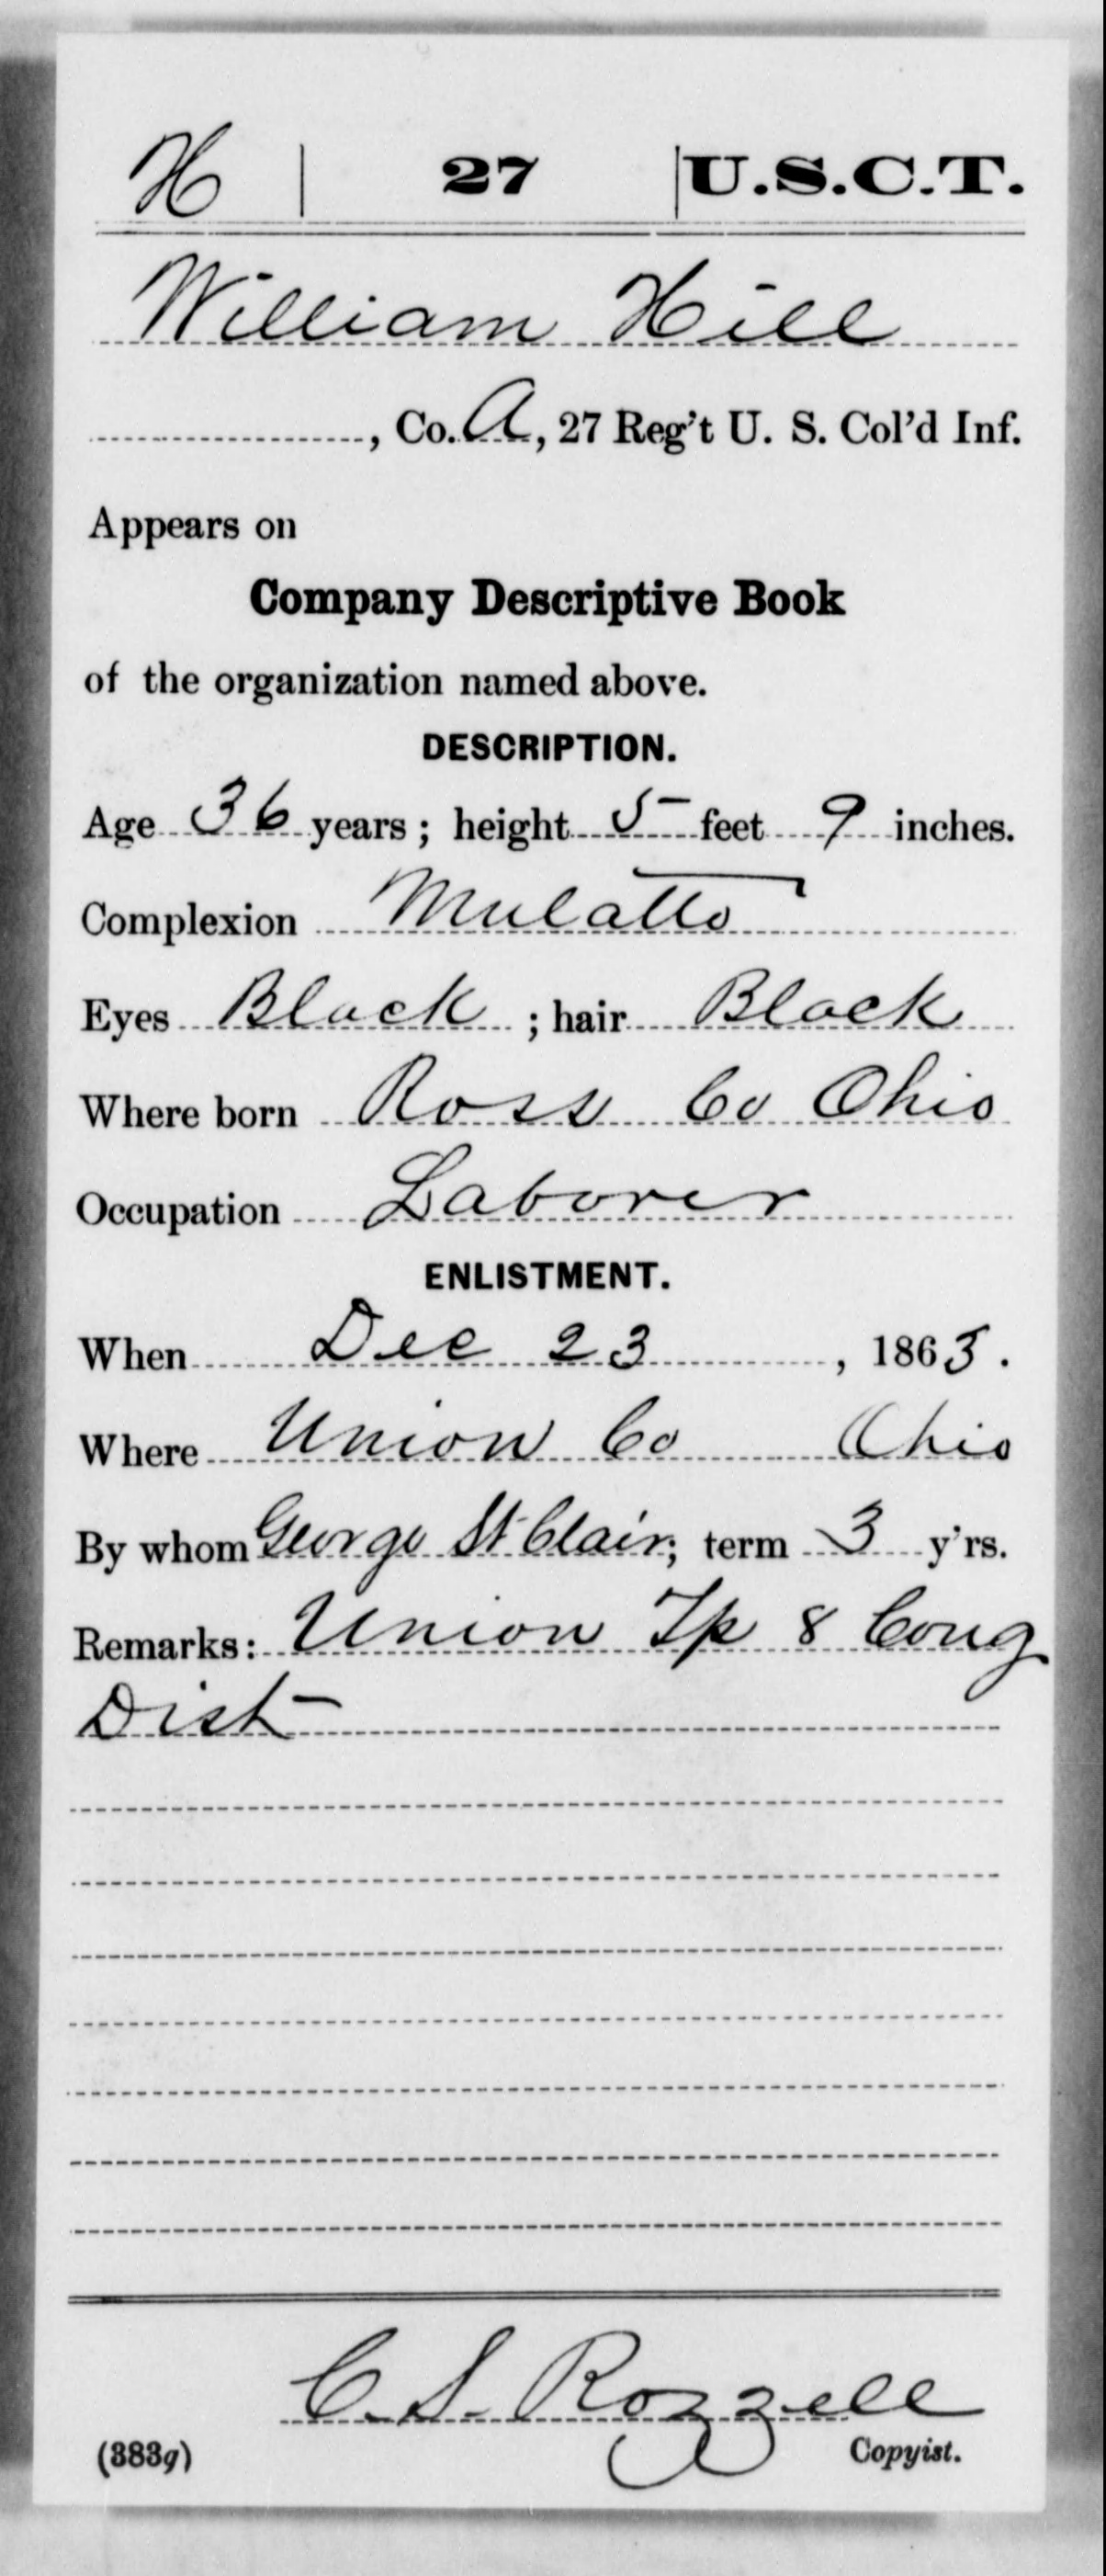 H | 27 | U.S.C.T.
William Hill
, Co. A, 27 Reg't U. S. Col'd Inf.
Appears on
Company Descriptive Book
of the organization named above.
DESCRIPTION.
Age 36 years; height 5 feet 9 inches.
Complexion Mulatto
Eyes Black; hair Black
Where born Ross Co Ohio
Occupation Laborer
ENLISTMENT.
When Dec 23, 1863.
Where Union Co Ohio
By whom George St Clair; term 3 y'rs.
Remarks: Union Tp 8 Cong
Dist
C. S. Rozzell
(383g) Copyist.